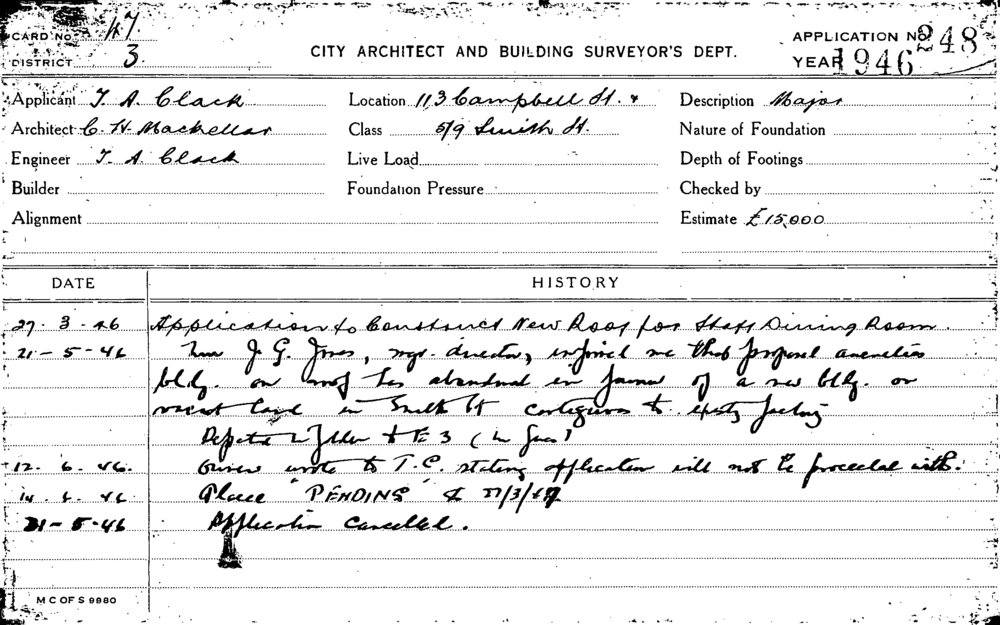 CARD No. 47
DISTRICT 3.
CITY ARCHITECT AND BUILDING SURVEYOR'S DEPT.
APPLICATION No 248
YEAR 1946
Applicant T. A. Clack Location 113 Campbell St. & Description Major
Architect C. H. Mackellar Class 5/9 Smith St. Nature of Foundation
Engineer T. A. Clack Live Load Depth of Footings
Builder Foundation Pressure Checked by
Alignment Estimate £15,000
DATE HISTORY
27. 3. 46 Application to Construct New Roof for Staff Dining Room.
21-5-46 J. G. Jones, mgr. director, informed me that proposed amenities
bldg. on roof has abandoned in favour of a new bldg. on
vacant land in Smith St contiguous to factory
12. 6. 46. Owner wrote to T.C. stating application will not be proceeded with.
14. 6. 46 Place "PENDING"
21-5-46 Application Cancelled.
M C OF S 9980